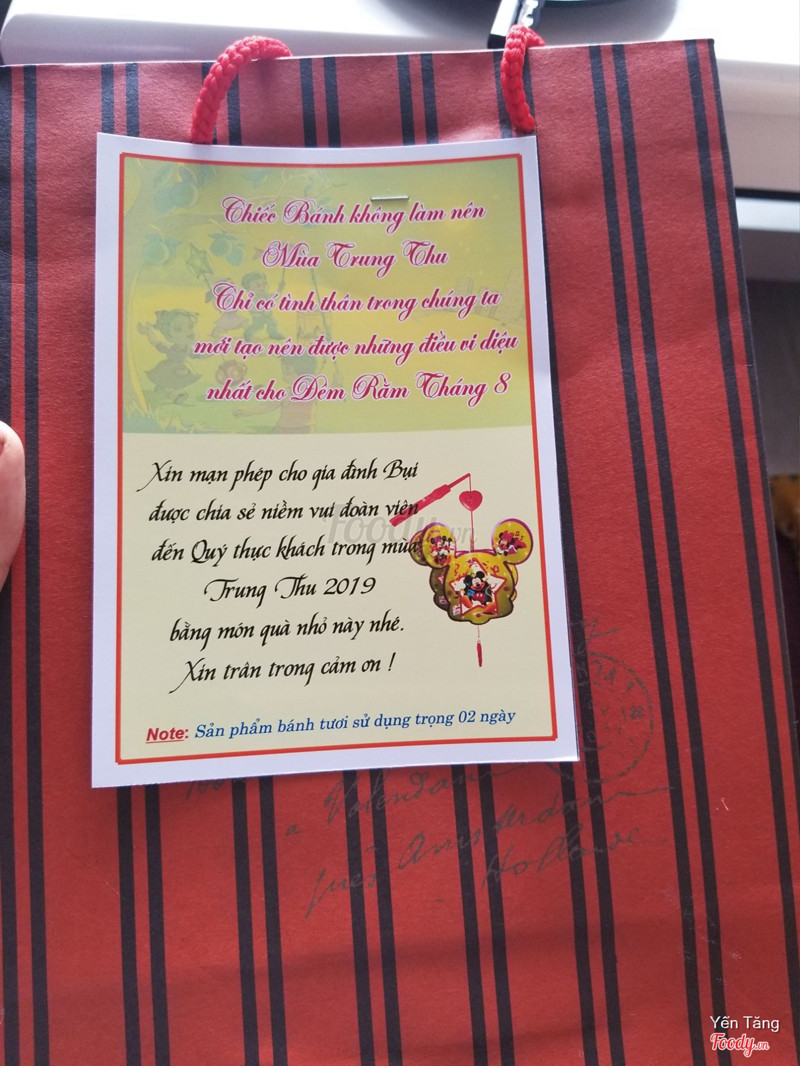 Chiếc Bánh không làm nên
Mùa Trung Thu
Chỉ có tình thân trong chúng ta
mới tạo nên được những điều vi diệu
nhất cho Đêm Rằm Tháng 8
Xin mạn phép cho gia đình Bụi
được chia sẻ niềm vui đoàn viên
đến Quý thực khách trong mùa
Trung Thu 2019
bằng món quà nhỏ này nhé.
Xin trân trong cảm ơn !
Note: Sản phẩm bánh tươi sử dụng trọng 02 ngày
a Volendam
près Amsterdam
Hollande
Foody.vn
Yến Tăng
Foody.vn